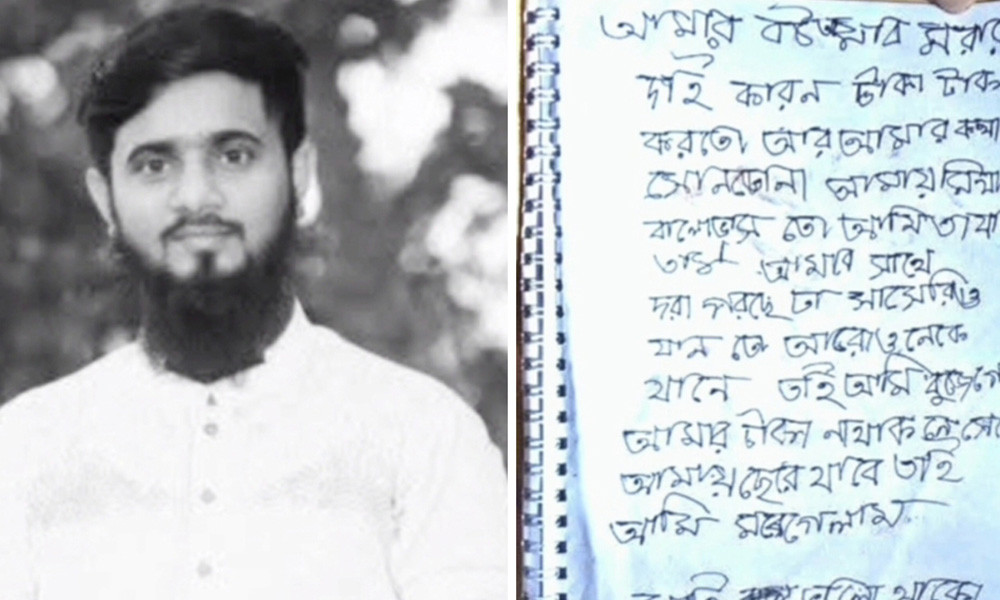 আমার বউ আমার মরার
দাই কারন টাকা টাকা
করতো আর আমার কথা
সোনতোনা আমায় মিথা
বালোভাস তো আমি
তাই আমার সাথে
দরা পরছে তা সাসেরিও
যান তো আরোওনেকে
যানে তাই আমি বুজেগে
আমার টাকা নথাকলে সে
আমায় ছেরে যাবে তাই
আমি মরেগেলাম
ভালো থাকো